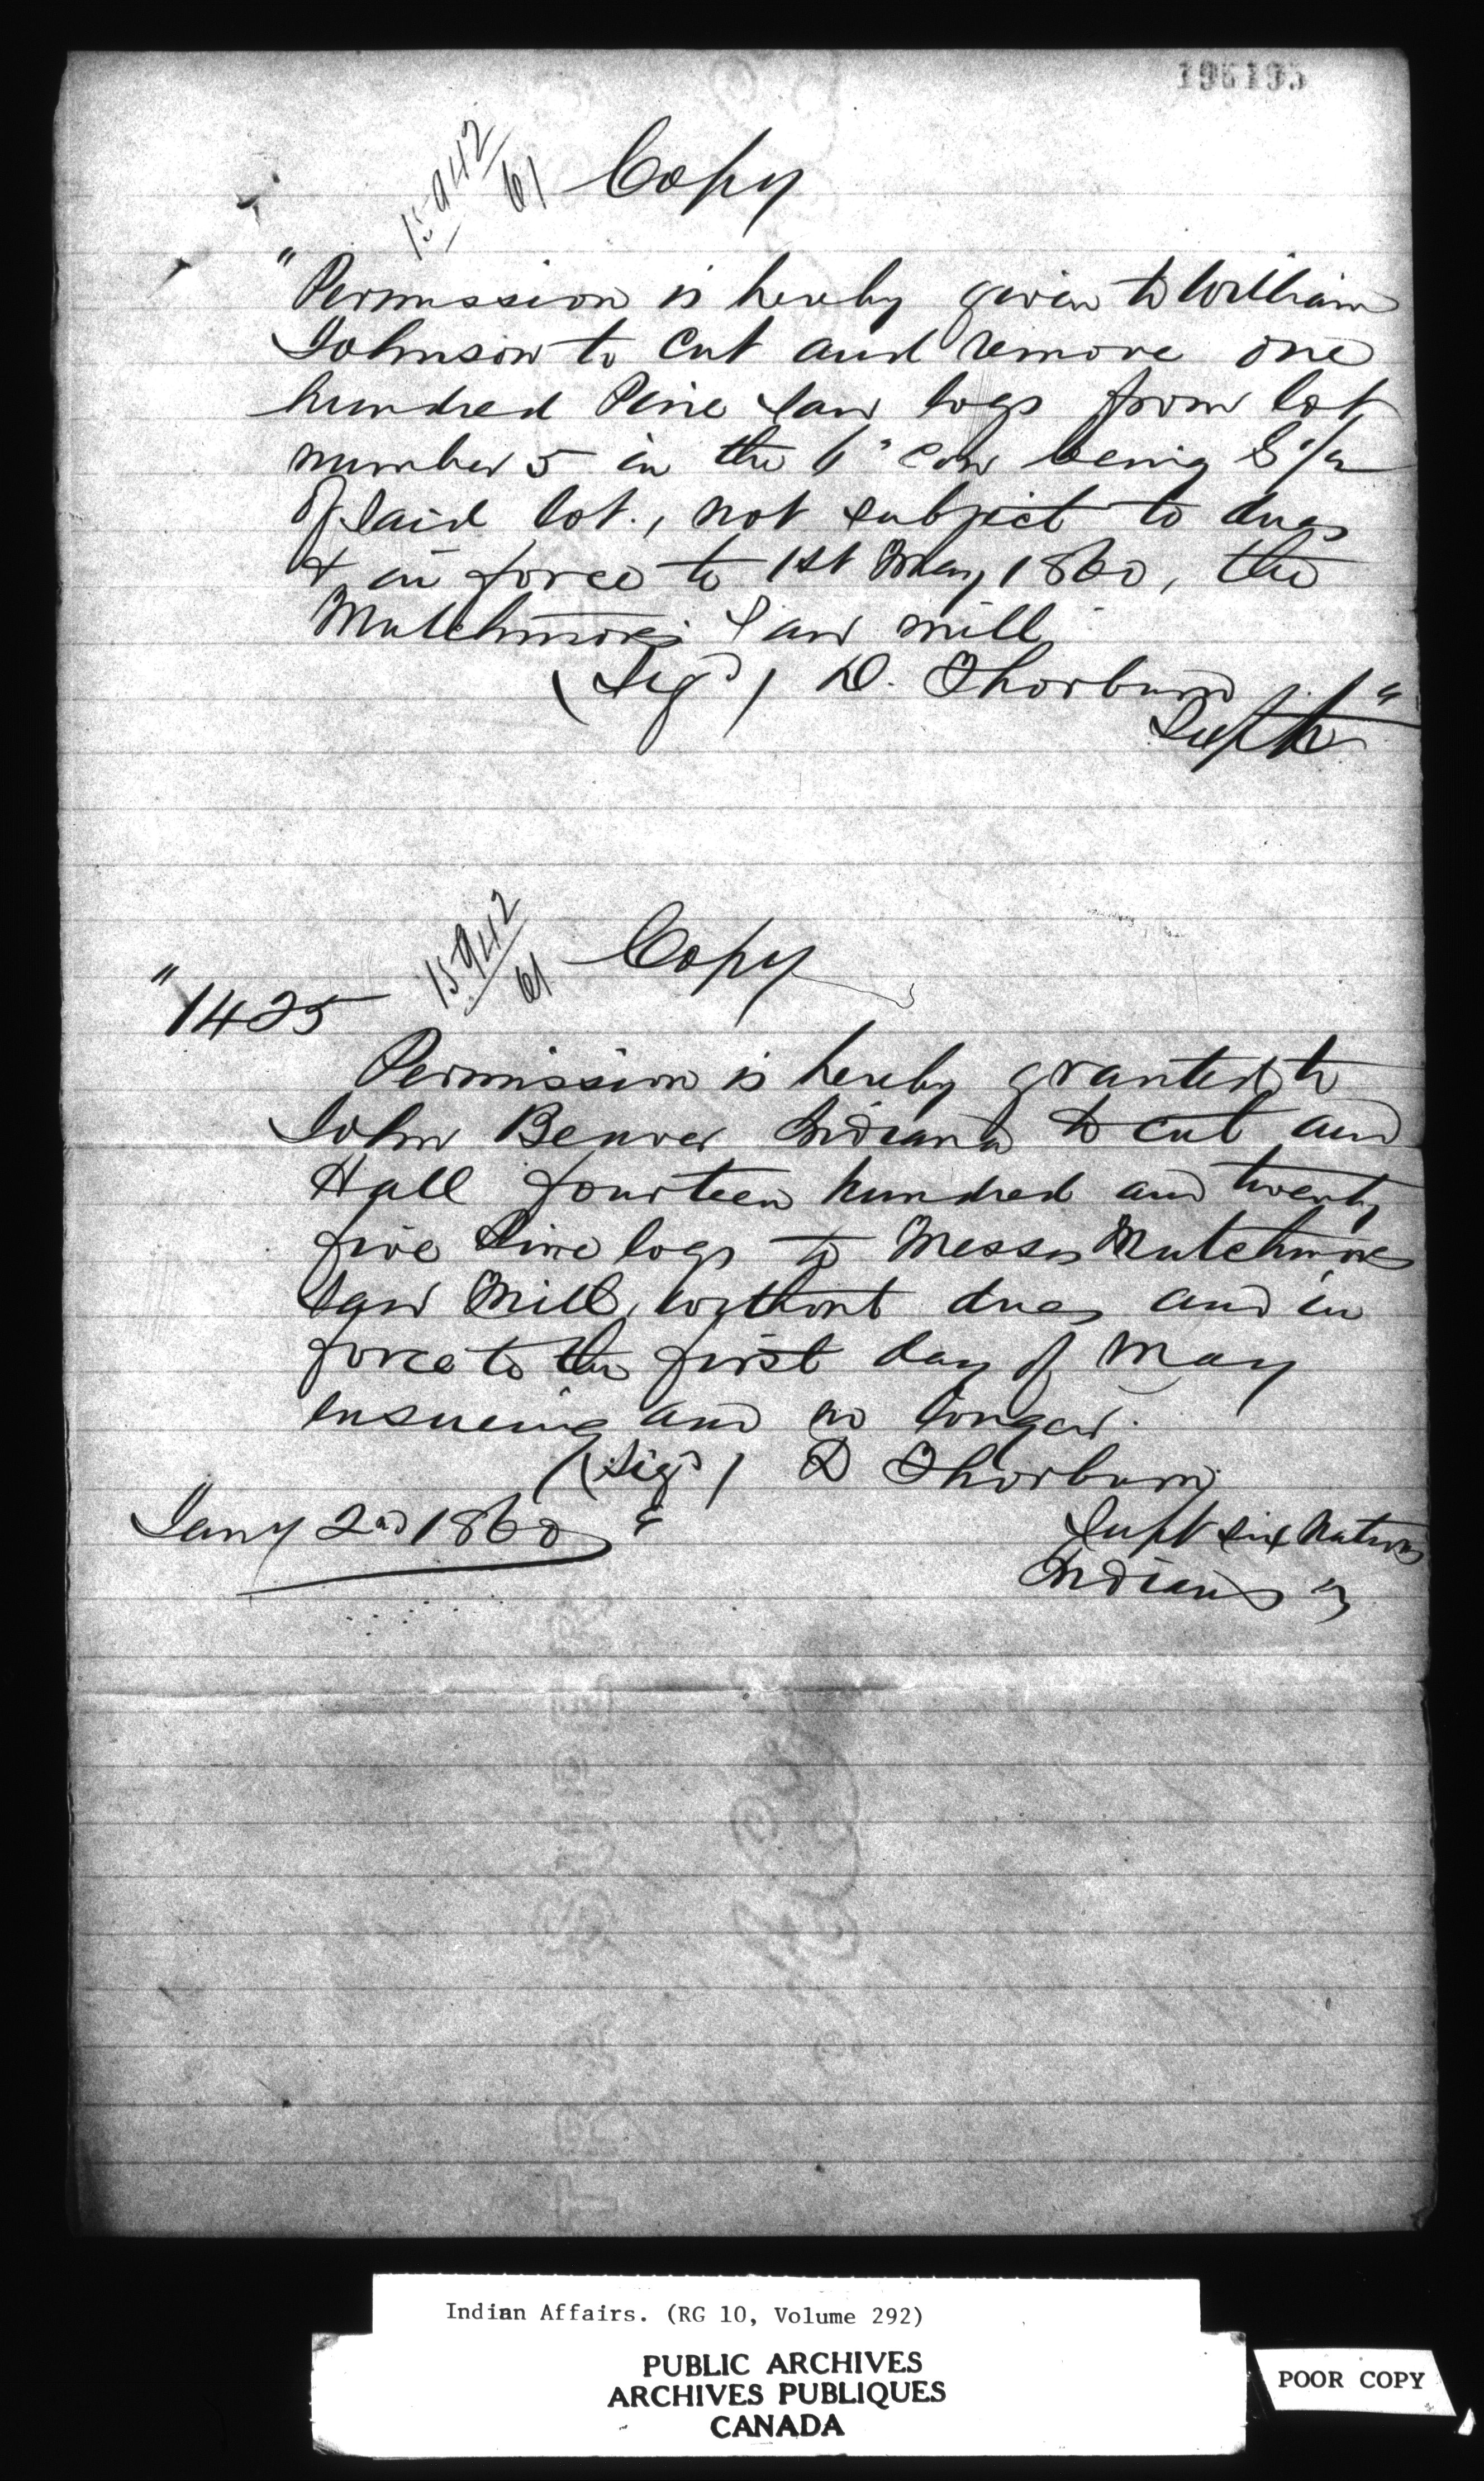 196195
15942/61 Copy
"Permission is hereby given to William
Johnson to cut and remove one
hundred Pine saw logs from lot
number 5 in the 6" Con being S 1/2
of said lot., not subject to dues
& in force to 1st May 1860, the
Mutchmores saw mill
(Sigd) D. Thorburn
Supt"
15942/61 Copy
"1425
Permission is hereby granted to
John Beaver Indian to cut and
Hall fourteen hundred and twenty
five Pine logs to Messrs Mutchmores
Saw Mill, without dues and in
force to the first day of May
ensueing and no longer.
(Sigd) D Thorburn
Jany 2nd 1860" Supt six Nations
Indians"
Indian Affairs. (RG 10, Volume 292)
PUBLIC ARCHIVES
ARCHIVES PUBLIQUES
CANADA
POOR COPY